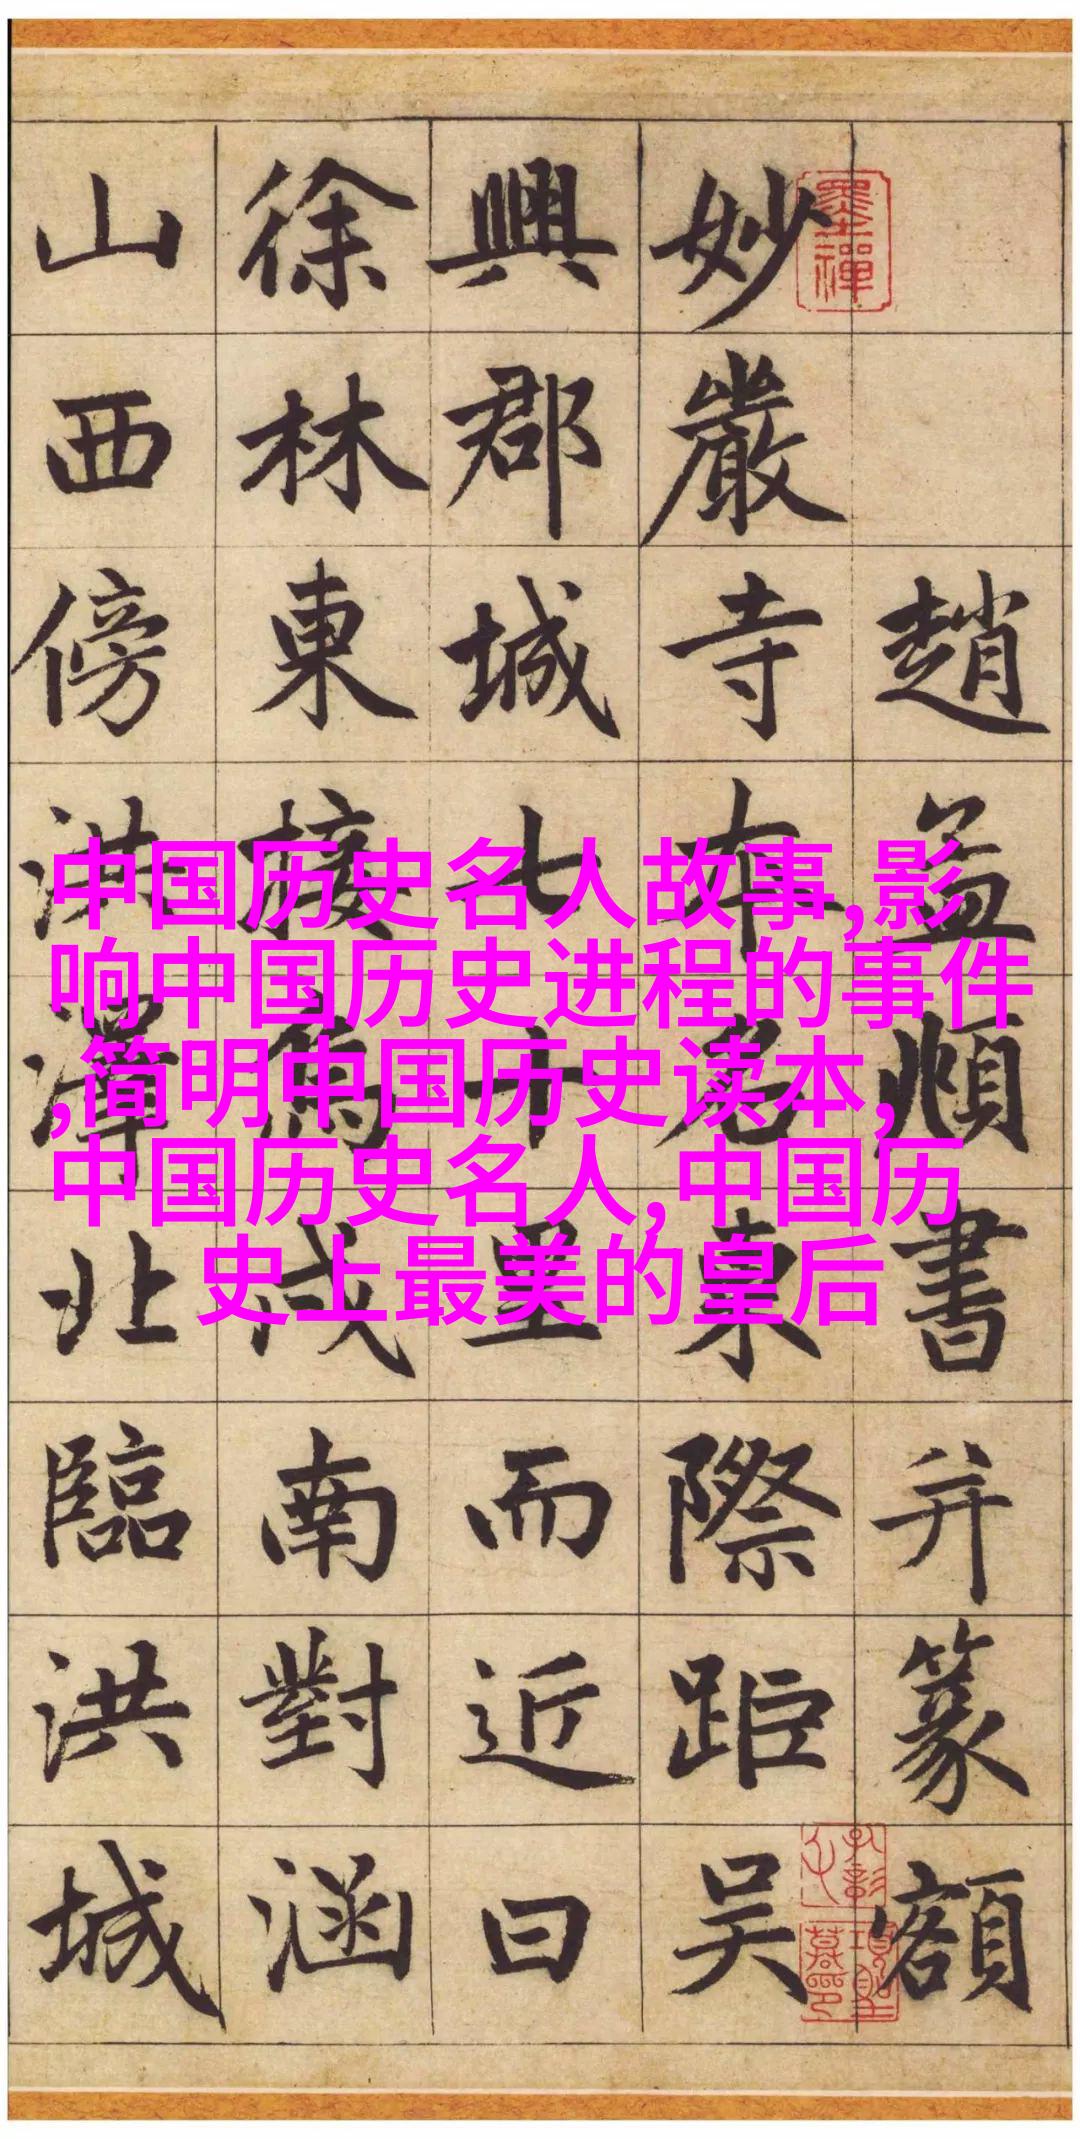 中国历史名人故事,影
响中国历史进程的事件
,简明中国历史读本,
中国历史名人,中国历
史上最美的皇后
趙孟頫書并篆額
妙嚴寺本名東際距吳
興郡城七十里而近曰
徐林東接烏戍南對涵
山西傍洪澤北臨洪城
墨禪